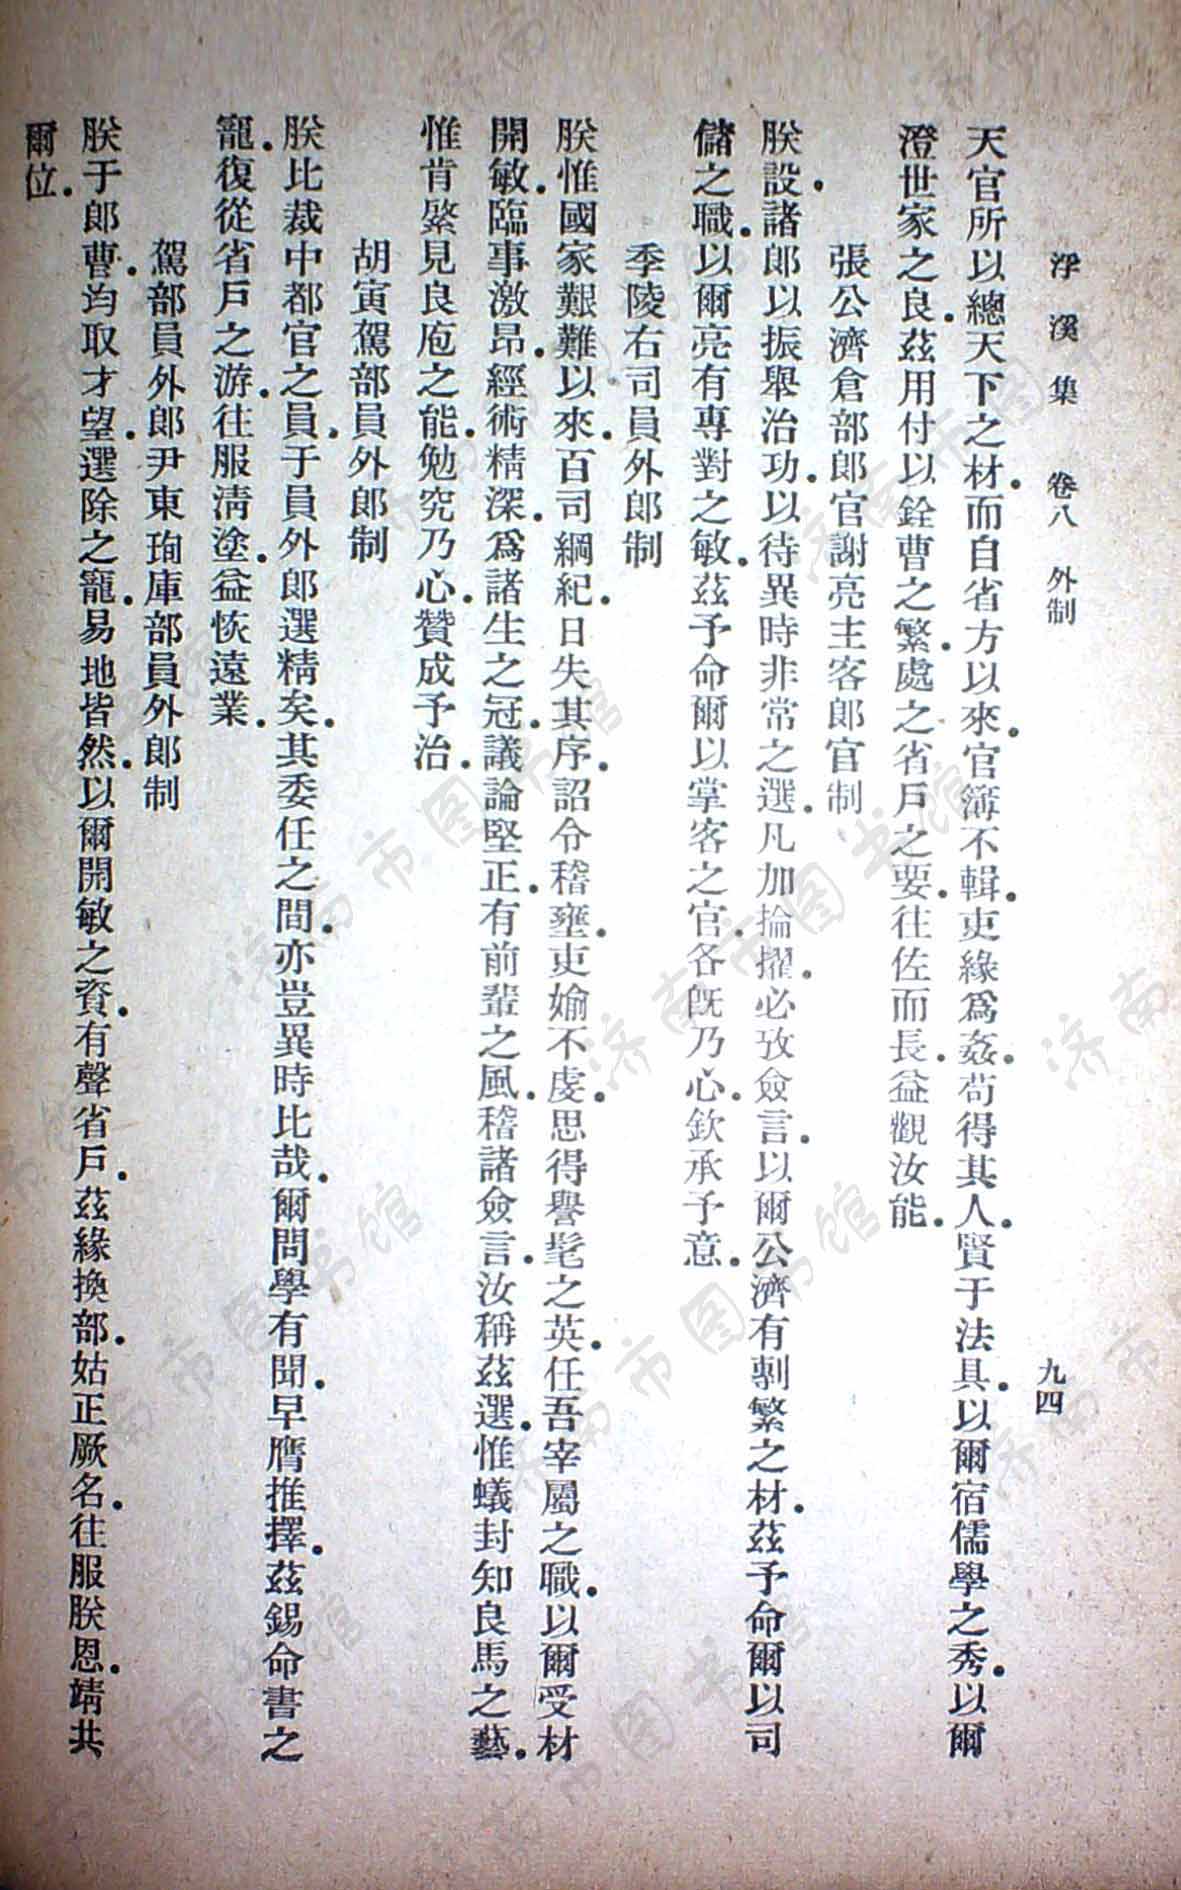 浮溪集　卷八　外制　九四
天官所以總天下之材.而自省方以來.官簿不輯.吏緣爲姦.苟得其人.賢于法具.以爾宿儒學之秀.以爾
澄世家之良.茲用付以銓曹之繁.處之省戶之要.往佐而長.益觀汝能.
張公濟倉部郎官謝亮主客郎官制
朕設諸郎.以振舉治功.以待異時非常之選.凡加掄擢.必攷僉言.以爾公濟有剸繁之材.茲予命爾以司
儲之職.以爾亮有專對之敏.茲予命爾以掌客之官.各旣乃心.欽承予意.
季陵右司員外郎制
朕惟國家艱難以來.百司綱紀.日失其序.詔令稽壅.吏媮不虔.思得譽髦之英.任吾宰屬之職.以爾受材
開敏.臨事激昂.經術精深.爲諸生之冠.議論堅正.有前輩之風.稽諸僉言.汝稱茲選.惟蟻封知良馬之藝.
惟肯綮見良庖之能.勉究乃心.贊成予治.
胡寅駕部員外郎制
朕比裁中都官之員.于員外郎選精矣.其委任之間.亦豈異時比哉.爾問學有聞.早膺推擇.茲錫命書之
寵.復從省戶之游.往服清塗.益恢遠業.
駕部員外郎尹東珣庫部員外郎制
朕于郎曹.均取才望.選除之寵.易地皆然.以爾開敏之資.有聲省戶.茲緣換部.姑正厥名.往服朕恩.靖共
爾位.
济南市图书馆